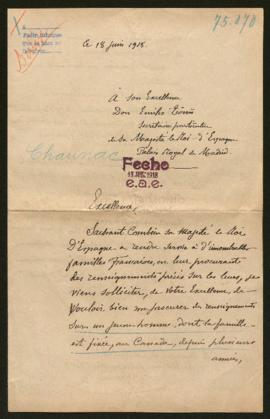 75.070
Le 18 juin 1918.
à Son Excellence
Don Emilio
Secrétaire particulier
de Sa Majesté le Roi d'Espagne
Palais Royal de Madrid.
Chaunac
Fecho
1918
e.a.e.
Excellence,
Sachant Combien Sa Majesté le Roi
d'Espagne a rendu service à d'innombrables
familles Françaises, en leur procurant
des renseignements précis sur les leurs, je
viens solliciter, de Votre Excellence, de
Vouloir bien me procurer des renseignements
sur un jeune homme, dont la famille
est fixée, au Canada, depuis plusieurs
années,